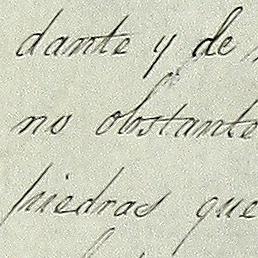 dante y de
no obstante
piedras que